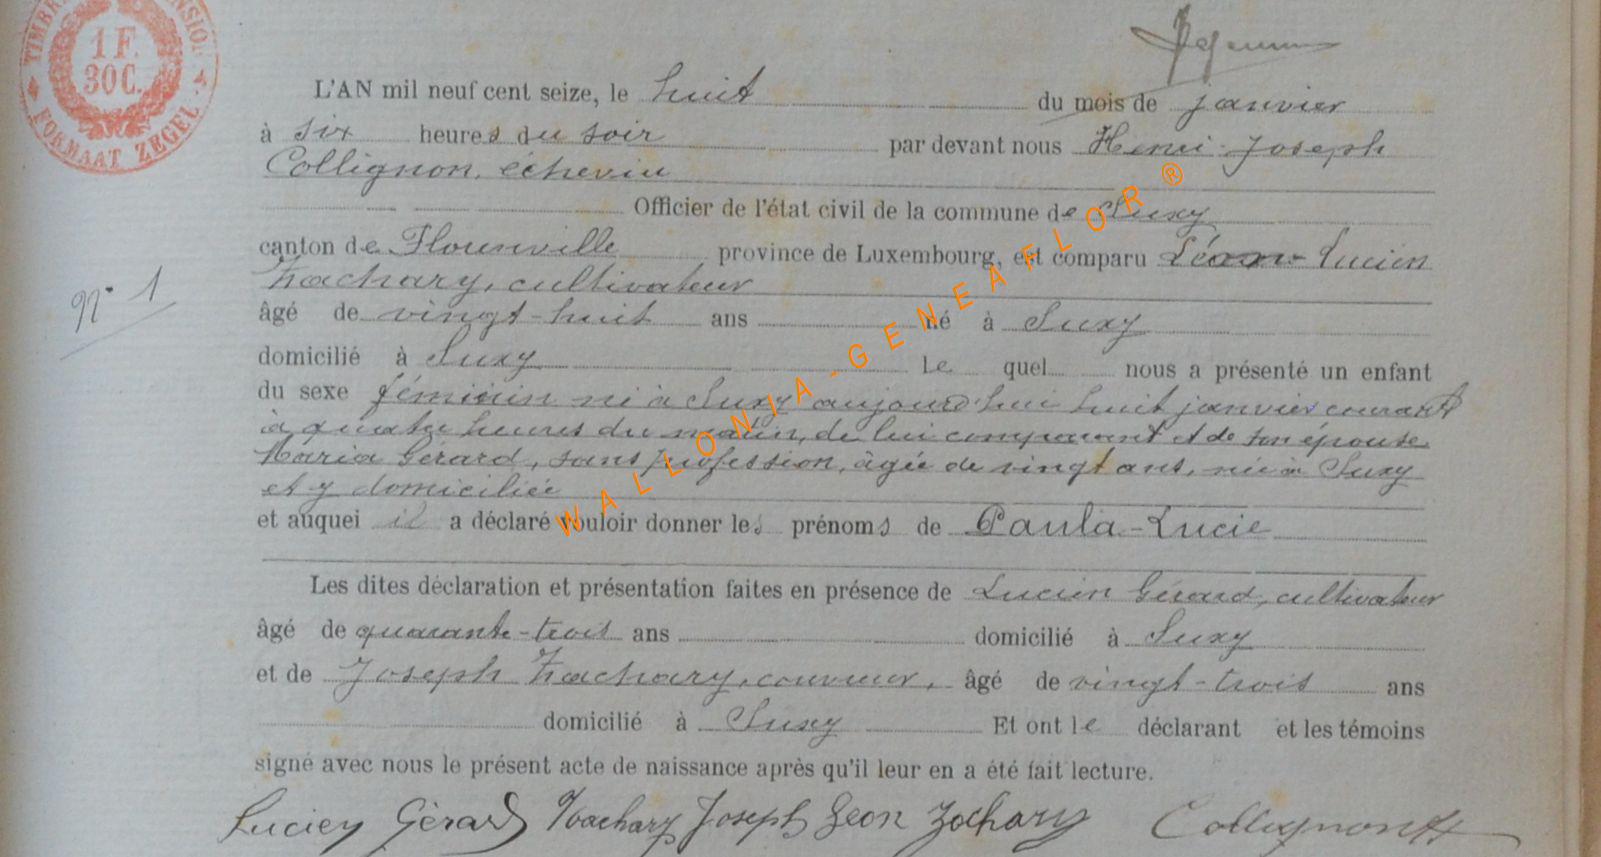 TIMBRE
1 F.
30C.
FORMAAT ZEGEL
N° 1
L'AN mil neuf cent seize, le huit du mois de janvier
à six heures du soir par devant nous Henri-Joseph
Collignon, échevin
Officier de l'état civil de la commune de Suxy
canton de Florenville province de Luxembourg, est comparu Léon-Lucien
Zachary, cultivateur
âgé de vingt-huit ans né à Suxy
domicilié à Suxy Le quel nous a présenté un enfant
du sexe féminin né à Suxy aujourd'hui huit janvier courant
à quatre heures du matin, de lui comparant et de son épouse
Maria Gérard, sans profession, âgée de vingt ans, née à Suxy
et y domiciliée
et auquel il a déclaré vouloir donner les prénoms de Paula-Lucie
Les dites déclaration et présentation faites en présence de Lucien Gérard, cultivateur
âgé de quarante-trois ans domicilié à Suxy
et de Joseph Zachary, couvreur, âgé de vingt-trois ans
domicilié à Suxy Et ont le déclarant et les témoins
signé avec nous le présent acte de naissance après qu'il leur en a été fait lecture.
Lucien Gérard Zachary Joseph Leon Zachary Collignon
WALLONIA-GENEAFLOR ®